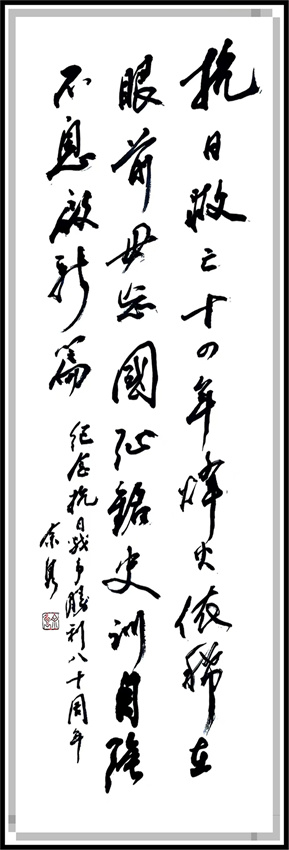 抗日救亡十四年烽火依稀在
眼前毋忘國耻銘史訓自強
不息啟新篇
紀念抗日戰爭勝利八十周年